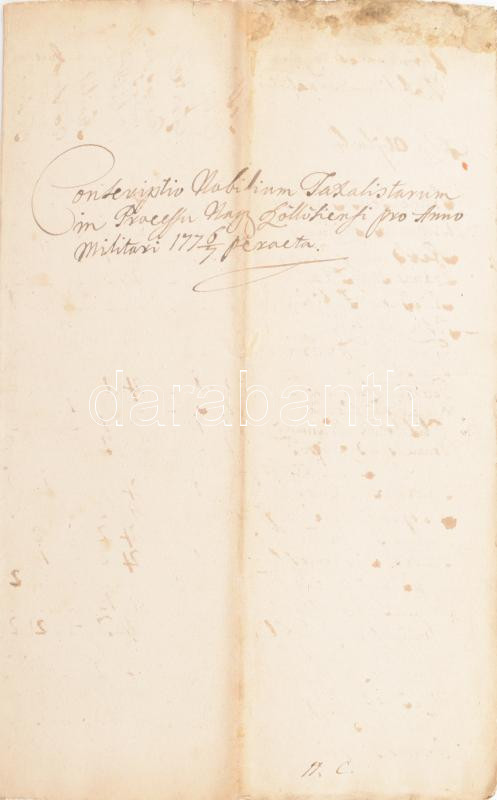 Conscriptio Nobilium Taxalistarum
in Processu Nagy Szöllösiensi pro Anno
Militari 1776/7 peracta.
darabanth
N. C.